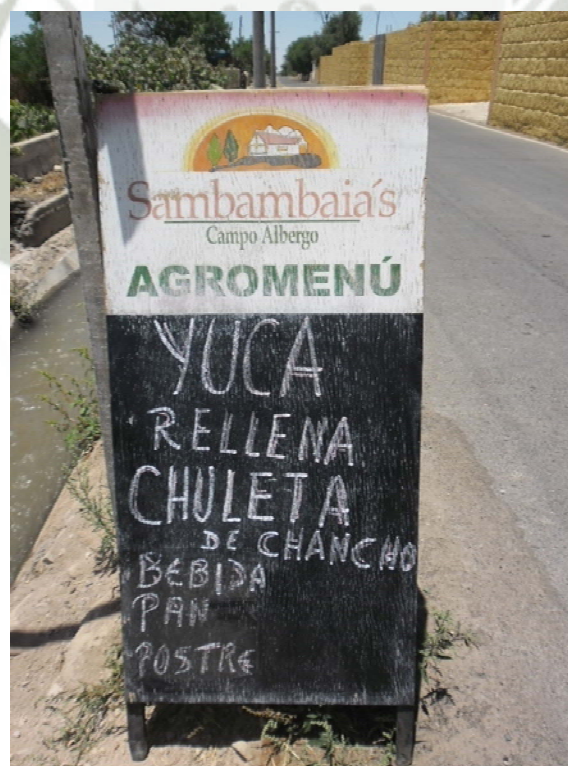 Sambambaia´s
Campo Albergo
AGROMENÚ
YUCA
RELLENA
CHULETA
DE CHANCHO
BEBIDA
PAN
POSTRE